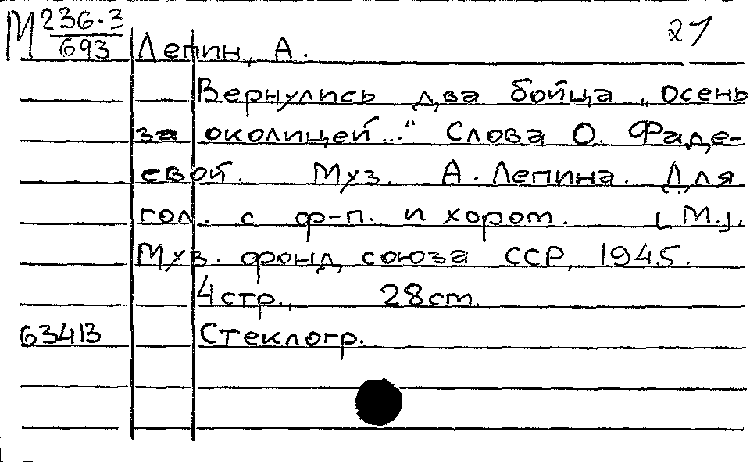 М 236-3
693
21
Лепин, А.
Вернулись два бойца „Осень
за околицей..." Слова О. Фаде-
евой. Муз. А. Лепина. Для
гол. с ф-п. и хором. [М.],
Муз. фонд союза ССР, 1945.
4 стр., 28 cm.
Стеклогр.